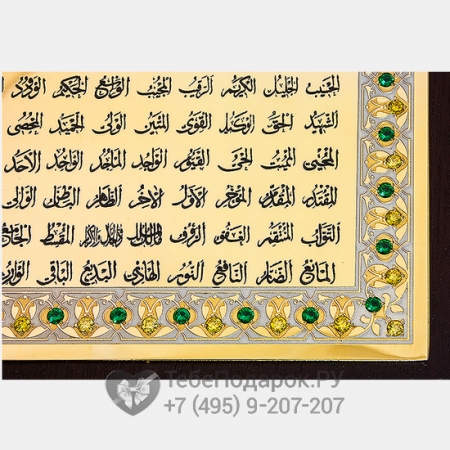 الحسيب الجليل الكريم الرقيب المجيب الواسع الحكيم الودود
الشهيد الحق الوكيل القوي المتين الولي الحميد المحصي
المحيي المميت الحي القيوم الواجد الماجد الواحد الاحد
المقتدر المقدم المؤخر الأول الآخر الظاهر الباطن الوالي
التواب المنتقم العفو الرؤف مالك الملك ذوالجلال والاكرام المقسط الجامع
المانع الضار النافع النور الهادي البديع الباقي الوارث
ТебеПодарок.РУ
+7 (495) 9-207-207